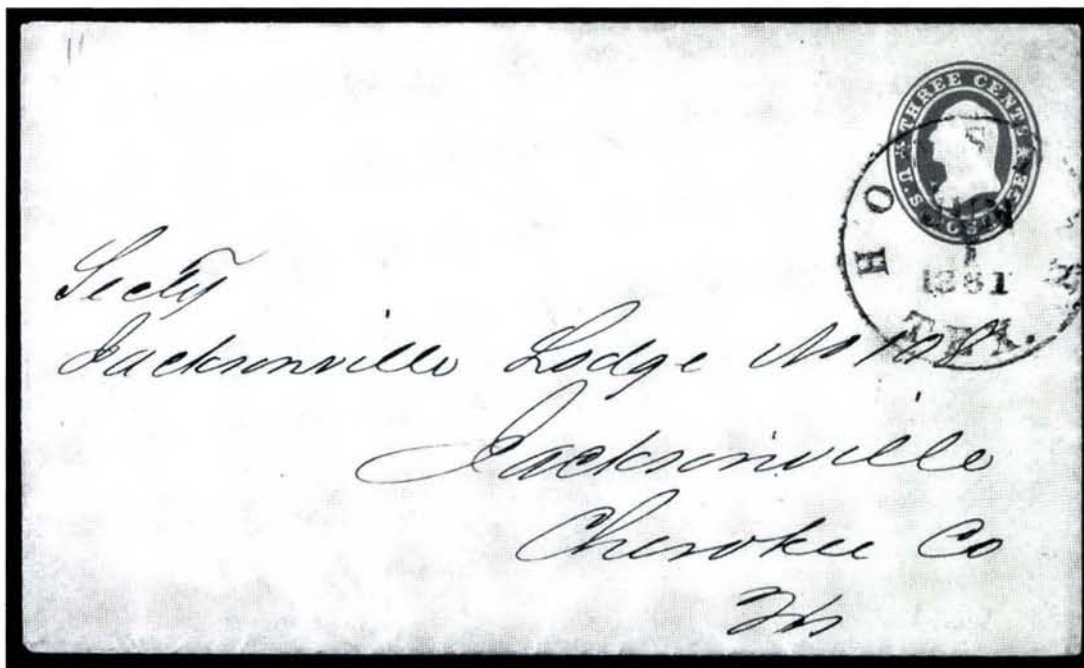 U.S. THREE CENTS
H O
1861
TEX.
Secty
Jacksonville Lodge No
Jacksonville
Cherokee Co